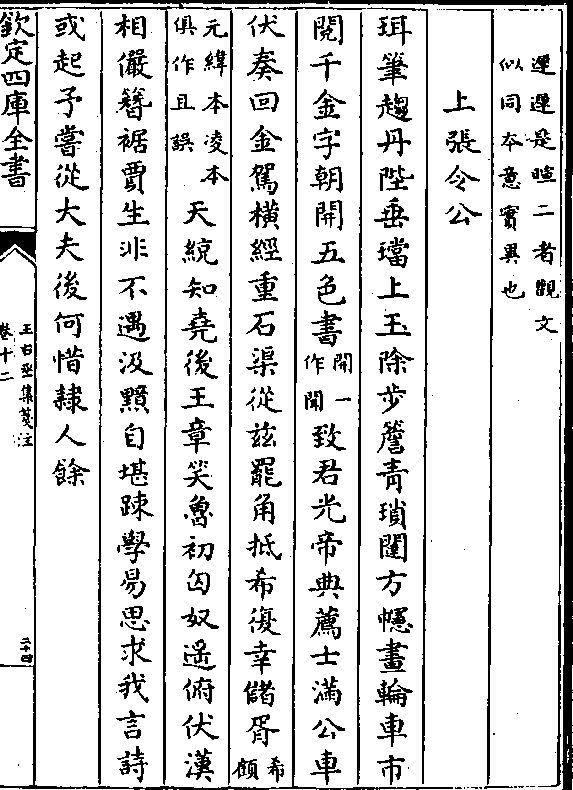 遲遲是暄二者觀文
似同夲意實異也
上張令公
珥筆趨丹陛垂璫上玉除步簷青瑣闥方幰畫輪車市
閱千金字朝開五色書開一作聞致君光帝典薦士滿公車
伏奏回金駕橫經重石渠從兹罷角抵希復幸儲胥希顧
元緯本凌本俱作且誤天統知堯後王章笑魯初匈奴遙俯伏漢
相儼簪裾賈生非不遇汲黯自堪踈學易思求我言詩
或起予嘗從大夫後何惜隸人餘
欽定四庫全書
王右丞集箋注
卷十二
二十四